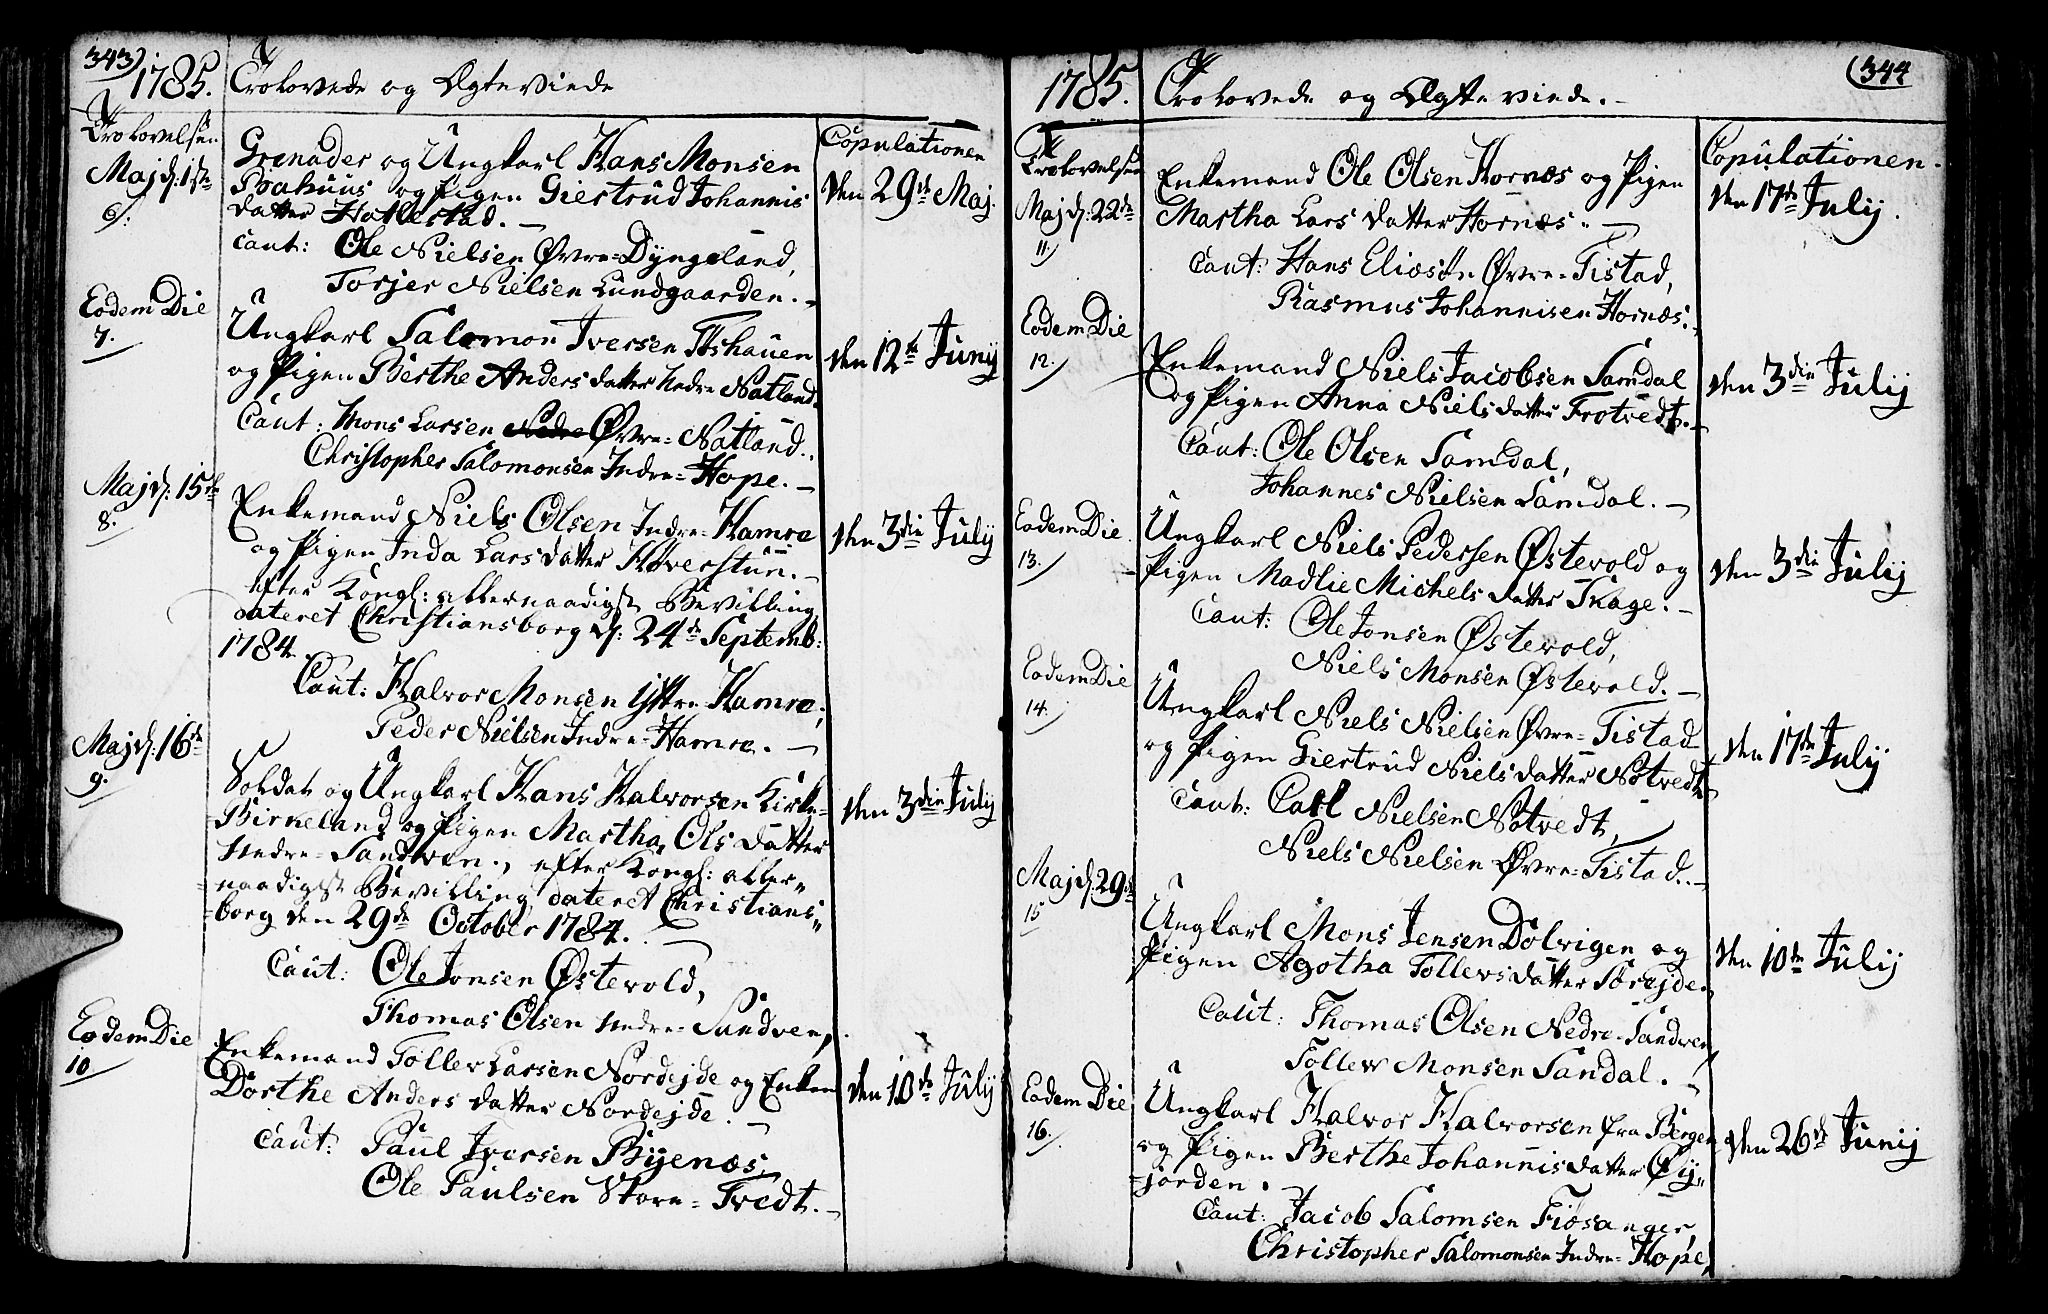 343)
1785. Trolovede og Ægteviede
Trolovelsen
Copulationen
Maj d: 1ste
6.
Grenader og Ungkarl Hans Monsen
Baahuus og Pigen Giertrud Johannis
datter Hatlestad. —
den 29de Maj.
Caut: Ole Nielsen Øvre-Dyngeland,
Torjer Nielsen Lundgaarden. —
Eodem Die
7.
Ungkarl Salomon Iversen
og Pigen Berthe Anders datter Nedre Natland.
den 12te Junij
Caut: Mons Larsen Nedre Øvre-Natland.
Christopher Salomonsen Indre-Hope. —
Maj d: 15de
8.
Enkemand Niels Olsen Indre-Hamre
og Pigen Inda Lars datter Høverstuu. —
efter Kongl: allernaadigst Bevilling
dateret Christiansborg d: 24de Septemb:
1784.
den 3die July
Caut: Halvor Monsen Yttre-Hamre,
Peder Nielsen Indre-Hamre. —
Maj d: 16de
9.
Soldat og Ungkarl Hans Halvorsen Kirke-
-Birkeland og Pigen Martha Ols datter
Nedre-Sandven., efter Kongl: aller-
-naadigst Bevilling dateret Christians-
-borg den 29de October 1784.
den 3die July
Caut: Ole Jonsen Østevold,
Thomas Olsen Nedre-Sandven,
Eodem Die
10
Enkemand Toller Larsen Nordejde og Enken
Dorthe Anders datter Nordejde. —
den 10de July
Caut: Paul Iversen Byenæs,
Ole Paulsen Store-Tvedt. —
(344
1785. Trolovede og Ægteviede. —
Trolovelsen
Copulationen.
Maj d: 22de
11
Enkemand Ole Olsen Hornæs og Pigen
Martha Lars datter Hornæs. —
den 17de July.
Caut: Hans Eliæsøn Øvre-Tistad,
Rasmus Johannisen Hornæs. —
Eodem Die
12.
Enkemand Niels Jacobsen Samdal
og Pigen Anna Niels datter Trotvedt. —
den 3die July
Caut: Ole Olsen Samdal,
Johannes Nielsen Samdal. —
Eodem Die
13.
Ungkarl Niels Pedersen Østevold og
Pigen Madlie Michels datter Skage. —
den 3die July
Caut: Ole Jonsen Østevold,
Niels Monsen Østevold. —
Eodem Die
14.
Ungkarl Niels Nielsen Øvre-Tistad
og Pigen Giertrud Niels datter Nøtvedt
den 17de July
Caut: Carl Nielsen Nøtvedt,
Niels Nielsen Øvre-Tistad. —
Maj d: 29de
15
Ungkarl Mons Jensen Dolvigen og
Pigen Agotha Tollevs datter Sørejde.
den 10de July
Caut: Thomas Olsen Nedre-Sandven,
Tollew Monsen Sandal. —
Eodem Die
16.
Ungkarl Halvor Halvorsen fra Bergen
og Pigen Berthe Johannis datter Øy-
-jorden.
den 26de Junij
Caut: Jacob Salomsen Fiøsanger,
Christopher Salomonsen Indre-Hope,